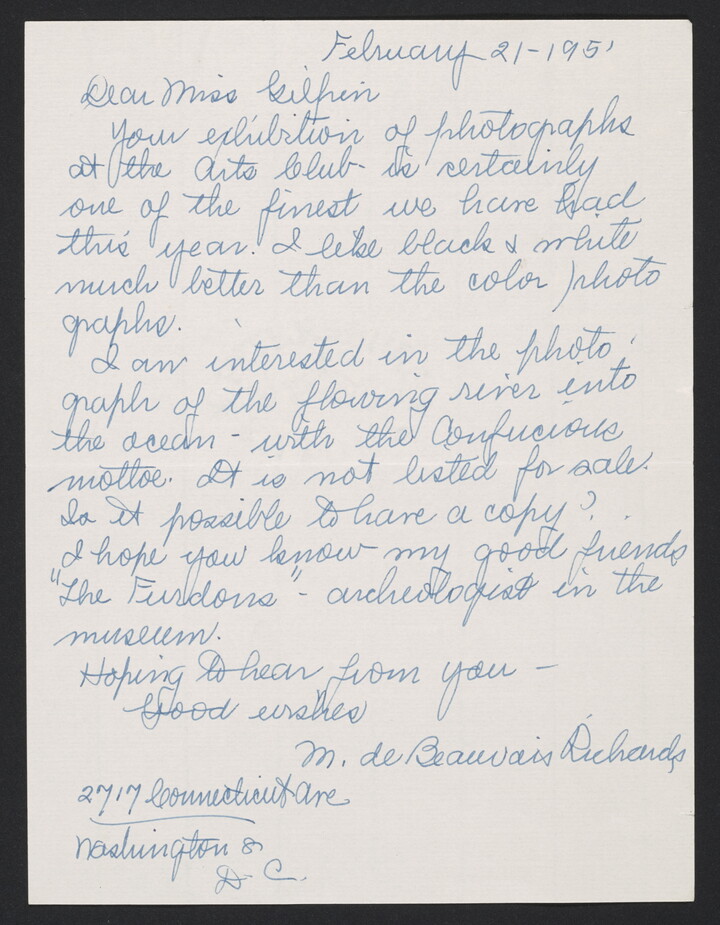 February 21-1951
Dear Miss Gilpin
Your exhibition of photographs
at the Arts Club - is certainly
one of the finest we have had
this year. I like black & white
much better than the color photo
graphs.
I am interested in the photo
graph of the flowing river into
the ocean - with the Confucious
mottoe. It is not listed for sale.
Is it possible to have a copy?
I hope you know my good friends
"The Furdons" - archeologist in the
museum.
Hoping to hear from you -
Good wishes
M. de Beauvais Richards
2717 Connecticut Ave
Washington 8
D. C.